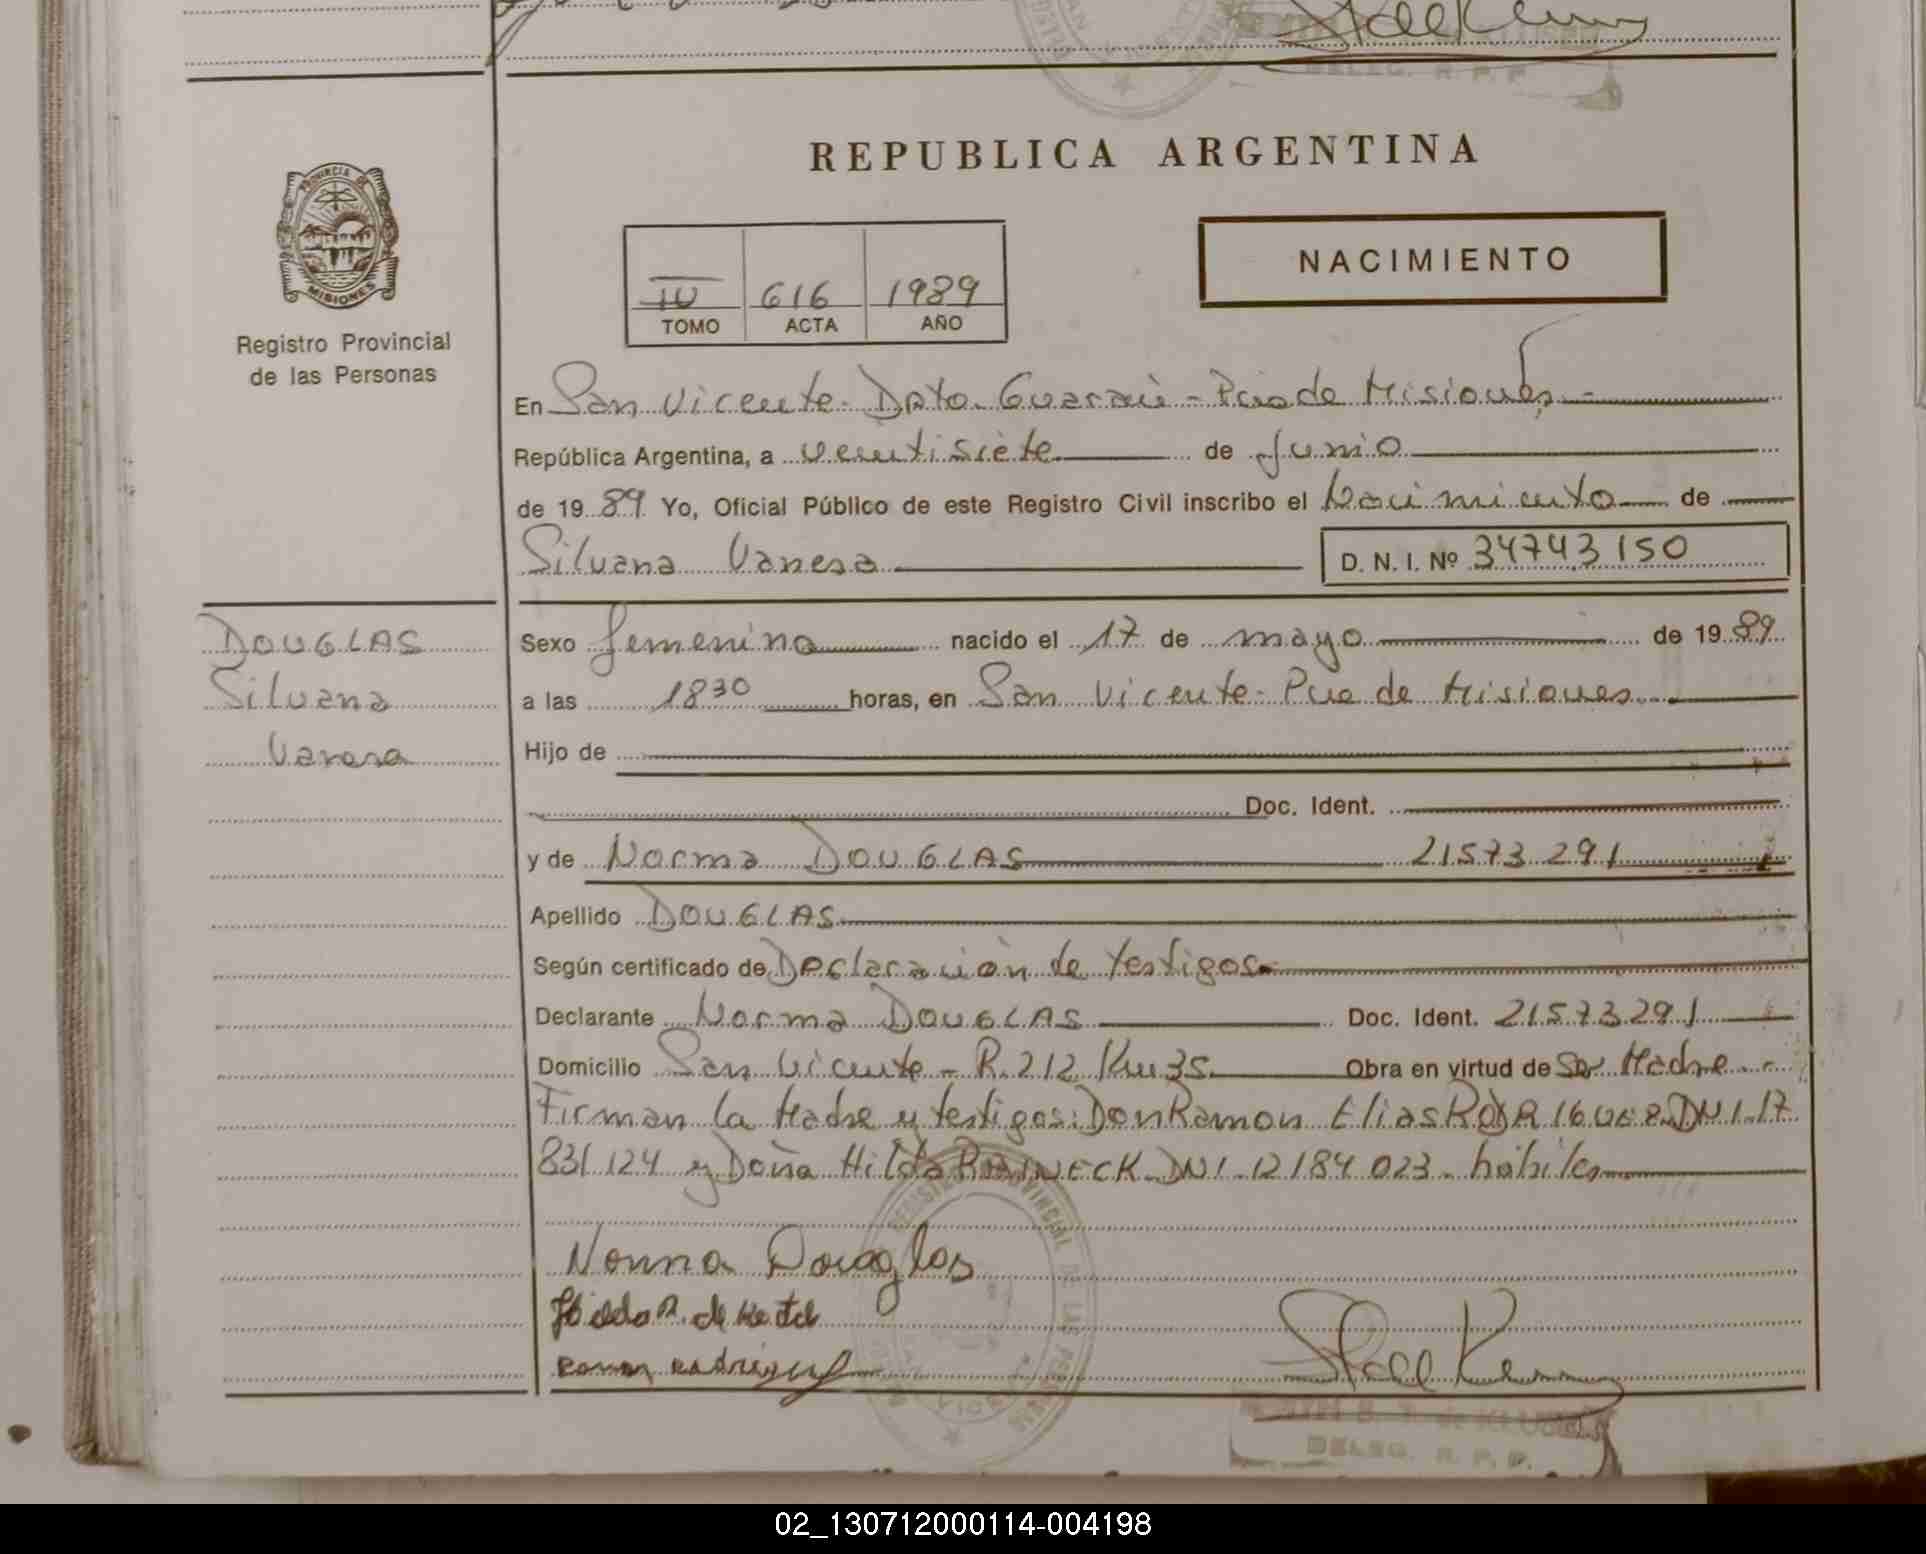 REPUBLICA ARGENTINA
PROVINCIA DE
MISIONES
Registro Provincial
de las Personas
NACIMIENTO
IV 616 1989
TOMO ACTA AÑO
En San Vicente - Dpto. Guaraní - Pcia de Misiones -
República Argentina, a veintisiete de Junio
de 19 89 Yo, Oficial Público de este Registro Civil inscribo el Nacimiento de
Silvana Vanesa D. N. I. Nº 34743150
DOUGLAS
Silvana
Vanesa
Sexo femenino nacido el 17 de mayo de 19 89
a las 18 30 horas, en San Vicente - Pcia de Misiones
Hijo de
Doc. Ident.
y de Norma DOUGLAS 21573291
Apellido DOUGLAS
Según certificado de Declaración de testigos
Declarante Norma DOUGLAS Doc. Ident. 21573291
Domicilio San Vicente - R. 212 Km 35 Obra en virtud de Ser Madre -
Firman la Madre y testigos: Don Ramon Elias DNI. 17
831.124 y Doña Hilda DNI. 12184.023 - hábiles
Norma Douglas
REGISTRO PROVINCIAL DE LAS PERSONAS
DELEG. R. P. P.
02_130712000114-004198